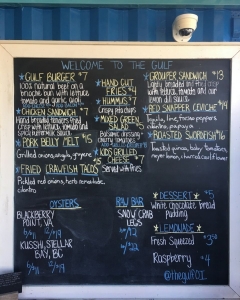 WELCOME TO THE GULF
GULF BURGER $7
100% natural beef on a
brioche bun with lettuce
tomato and garlic aioli
CHICKEN SANDWICH
Hand breaded tenders fried
crisp with lettuce, tomato and
PORK BELLY MELT $15
Grilled onions, arugula, gruyere
FRIED CRAWFISH TACOS
Pickled red onions, herb remoulade,
cilantro
HAND CUT
FRIES $4
HUMMUS $7
Crispy pita chips
MIXED GREEN
SALAD
Balsamic dressing
cherry tomatoes
KIDS GRILLED
CHEESE $7
Served with fries
GROUPER SANDWICH $13
Lightly breaded
lettuce, tomato and our
lemon dill sauce
RED SNAPPER CEVICHE $14
Tequila, lime, fresno peppers
cilantro
ROASTED SQUASH
Toasted quinoa, baby tomatoes,
meyer lemon, charred cauliflower
OYSTERS
BLACKBERRY
POINT, VA
KUSSHI, STELLAR
BAY, BC
RAW BAR
SNOW CRAB
LEGS
DESSERT $5
White chocolate bread
pudding
LEMONADE
Fresh Squeezed
Raspberry $4
@thegulfOI